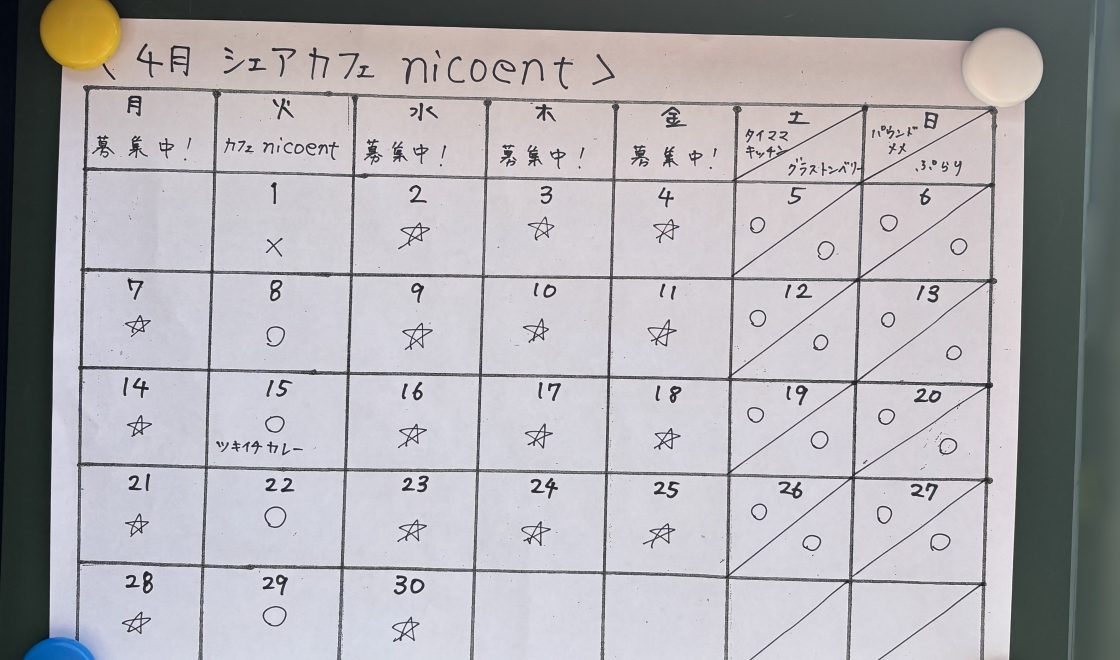 〈 4月 シェアカフェ nicoent 〉
月 火 水 木 金 土 日
募集中! カフェ nicoent 募集中! 募集中! 募集中! タイママ キッチン グラストンベリー パウンド メメ ぷらり
1 2 3 4 5 6
× ☆ ☆ ☆ ○ ○ ○ ○
7 8 9 10 11 12 13
☆ ○ ☆ ☆ ☆ ○ ○ ○ ○
14 15 16 17 18 19 20
☆ ○ ☆ ☆ ☆ ○ ○ ○ ○
ツキイチカレー
21 22 23 24 25 26 27
☆ ○ ☆ ☆ ☆ ○ ○ ○ ○
28 29 30
☆ ○ ☆